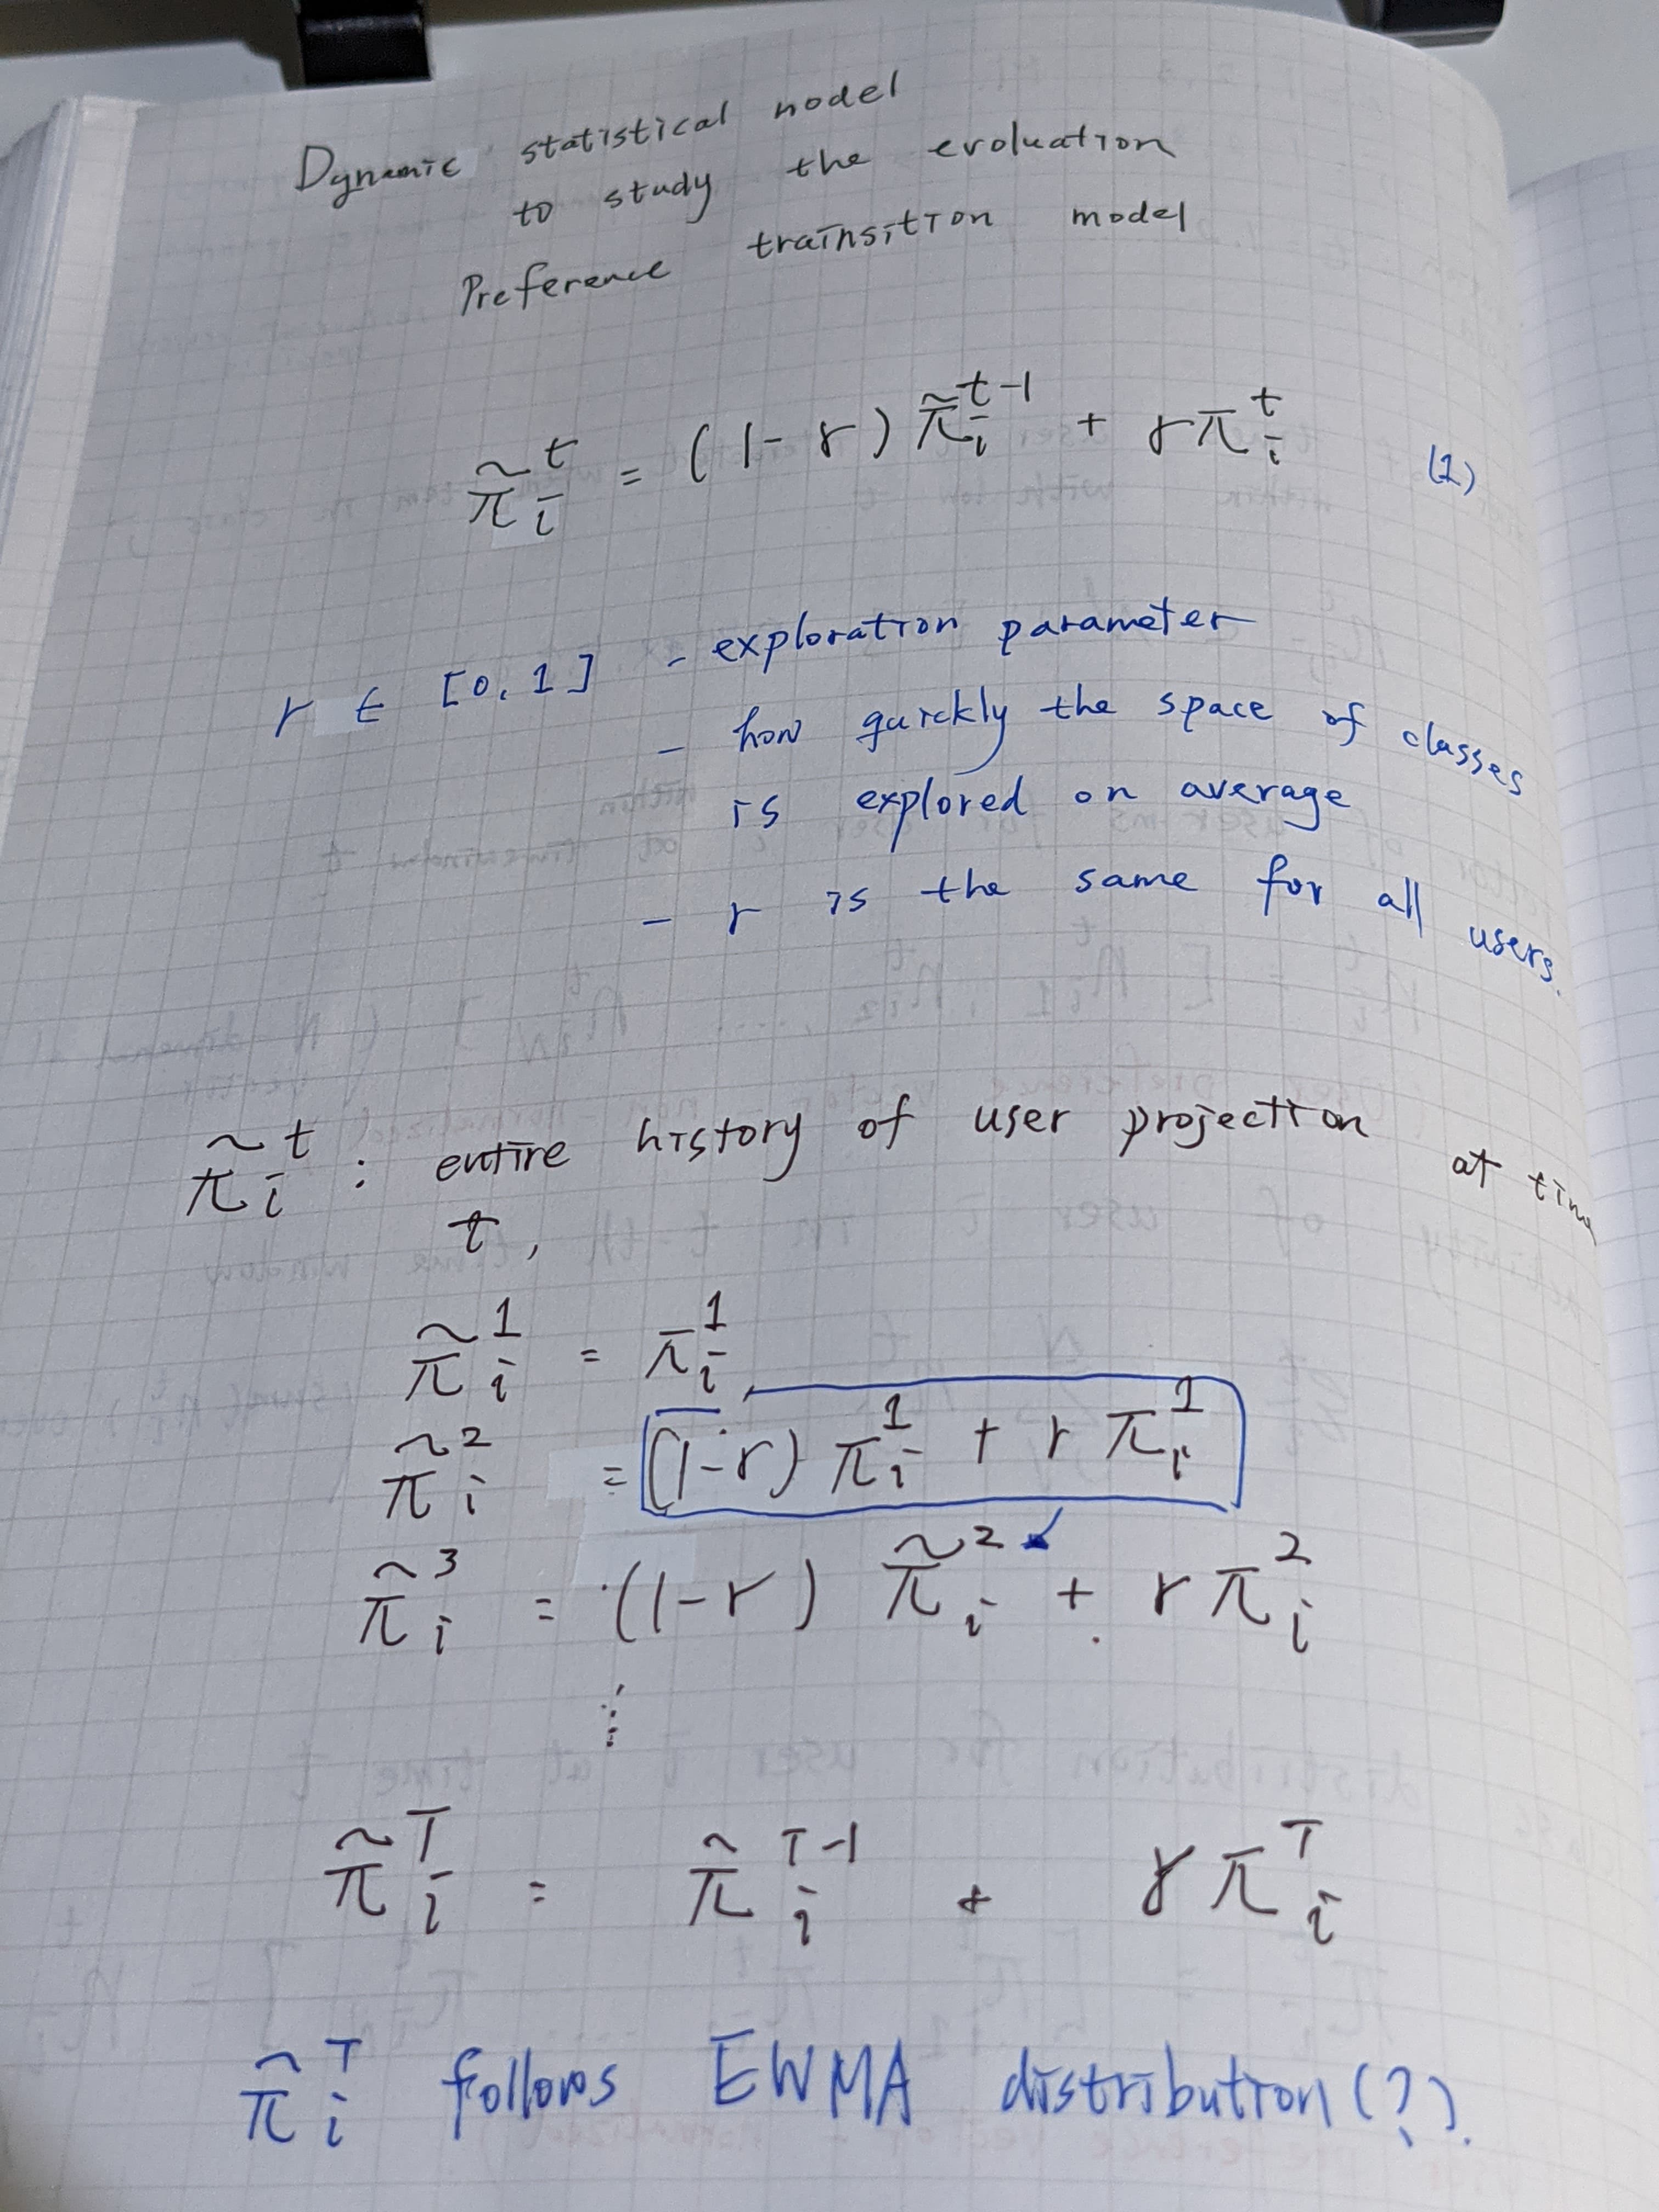 Dynamic statistical model
to study the evoluation
Preference trainsition model
π̃ᵢᵗ = (1-r) π̃ᵢᵗ⁻¹ + rπᵢᵗ (1)
r ∈ [0, 1] - exploration parameter
- how quickly the space of classes
is explored on average
- r is the same for all users.
π̃ᵢᵗ : entire history of user projection at time
t,
π̃ᵢ¹ = πᵢ¹
π̃ᵢ² = (1-r) πᵢ¹ + r πᵢ¹
π̃ᵢ³ = (1-r) π̃ᵢ² + r πᵢ²
⋮
π̃ᵢᵀ = π̃ᵢᵀ⁻¹ + r πᵢᵀ
π̃ᵢᵀ follows EWMA distribution(?).